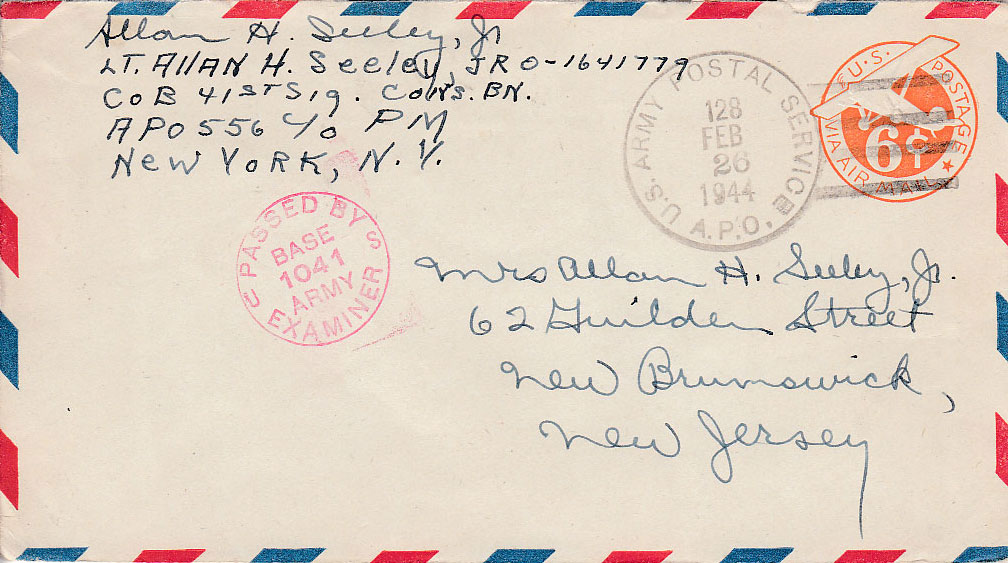 Allan H. Seeley, Jr
LT. AllAN H. Seeley, JR O-1641779
Co B 41ST Sig. Cons. BN.
APO 556 C/o PM
New York, N.Y.
U.S. ARMY POSTAL SERVICE
128
FEB
26
1944
A.P.O.
U.S. POSTAGE
6¢
VIA AIR MAIL
PASSED BY
U S
BASE
1041
ARMY
EXAMINER
Mrs Allan H. Seeley, Jr.
62 Guilden Street
New Brunswick,
New Jersey